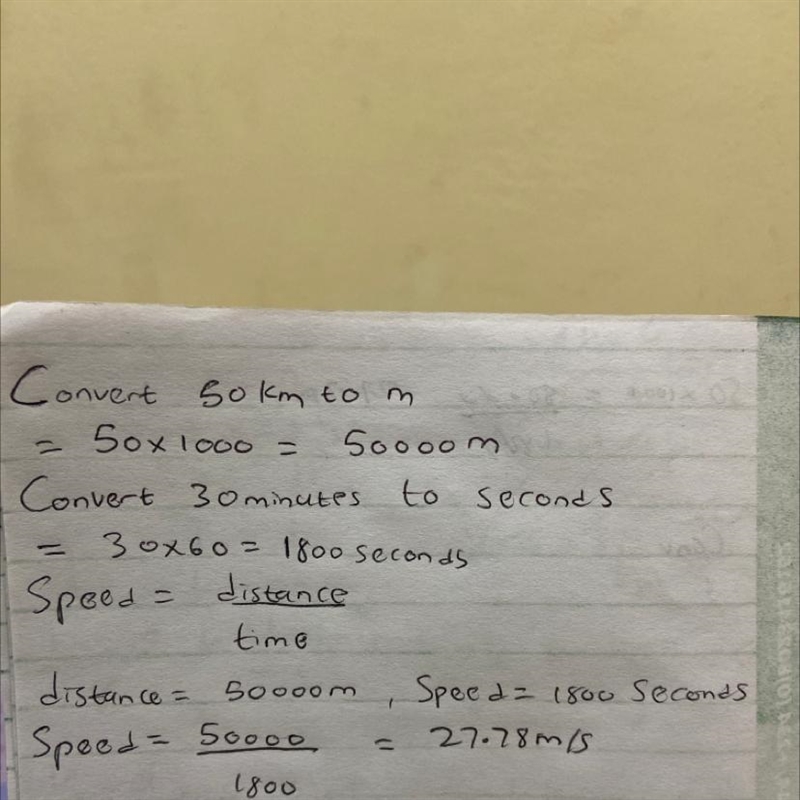 Convert 50 km to m
= 50×1000 = 50000m
Convert 30minutes to seconds
= 30×60 = 1800 seconds
Speed = distance
time
distance = 50000m , Speed = 1800 Seconds
Speed = 50000 = 27.78m/s
1800